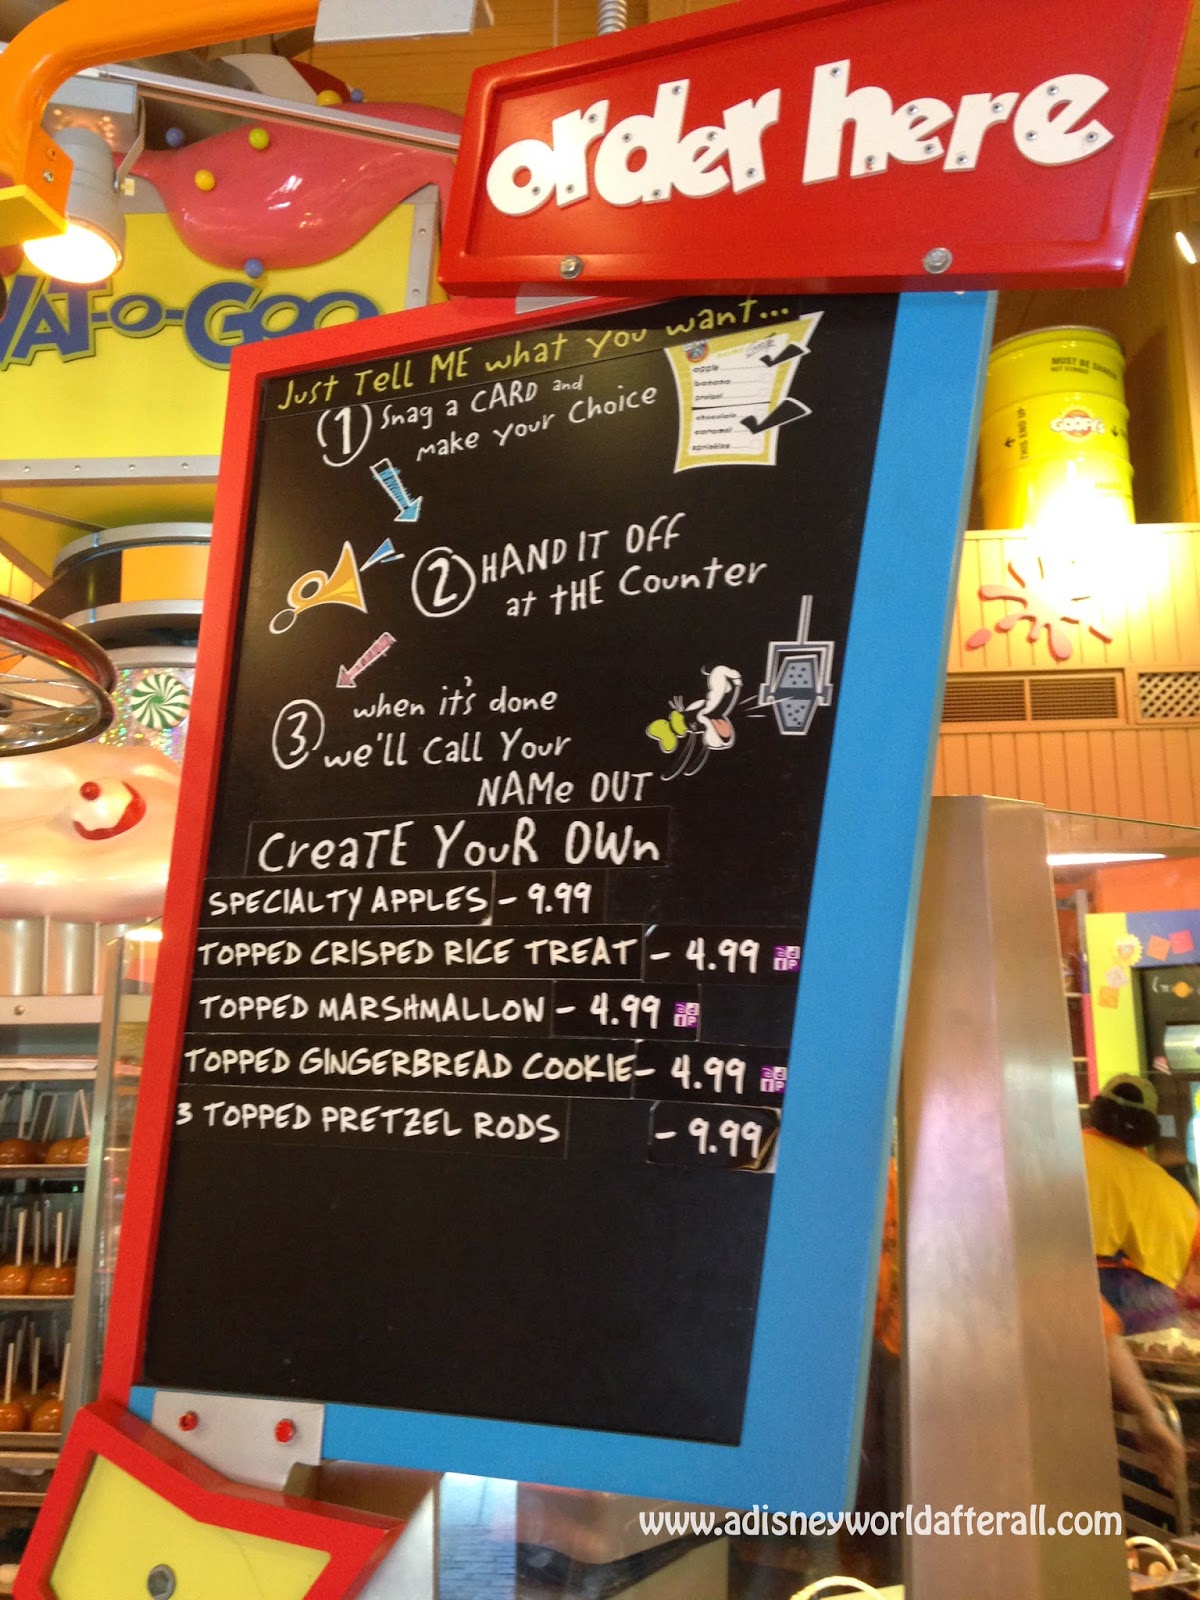 order here
VAT-O-GOO
Just Tell ME what you want...
1 Snag a CARD and
make your Choice
apple
banana
pretzel
chocolate
caramel
sprinkles
2 HAND IT OFF
at tHE Counter
3 when it's done
we'll call Your
NAMe OUT
CreaTE YouR OWn
SPECIALTY APPLES - 9.99
TOPPED CRISPED RICE TREAT - 4.99
TOPPED MARSHMALLOW - 4.99
TOPPED GINGERBREAD COOKIE - 4.99
3 TOPPED PRETZEL RODS - 9.99
MUST BE SHARED
THIS END UP
GOOFY'S
www.adisneyworldafterall.com